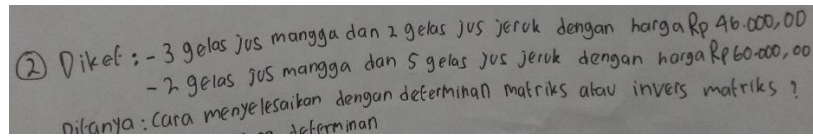 ② Diket : - 3 gelas jus mangga dan 2 gelas jus jeruk dengan harga Rp 46.000,00
- 2 gelas jus mangga dan 5 gelas jus jeruk dengan harga Rp 60.000,00
Ditanya : Cara menyelesaikan dengan determinan matriks atau invers matriks ?
determinan